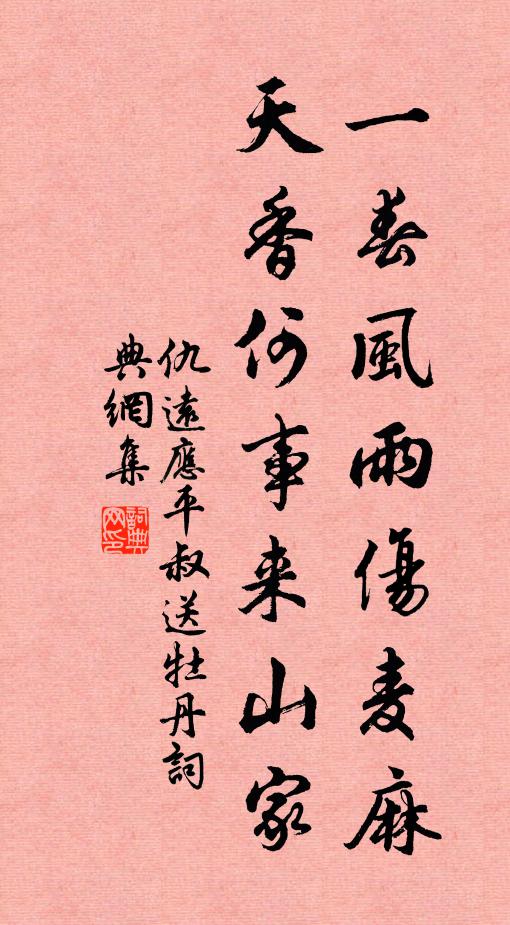 一春風雨傷麦麻
天香何事来山家
仇遠應平叔送牡丹詞
典網集
詞典
网印